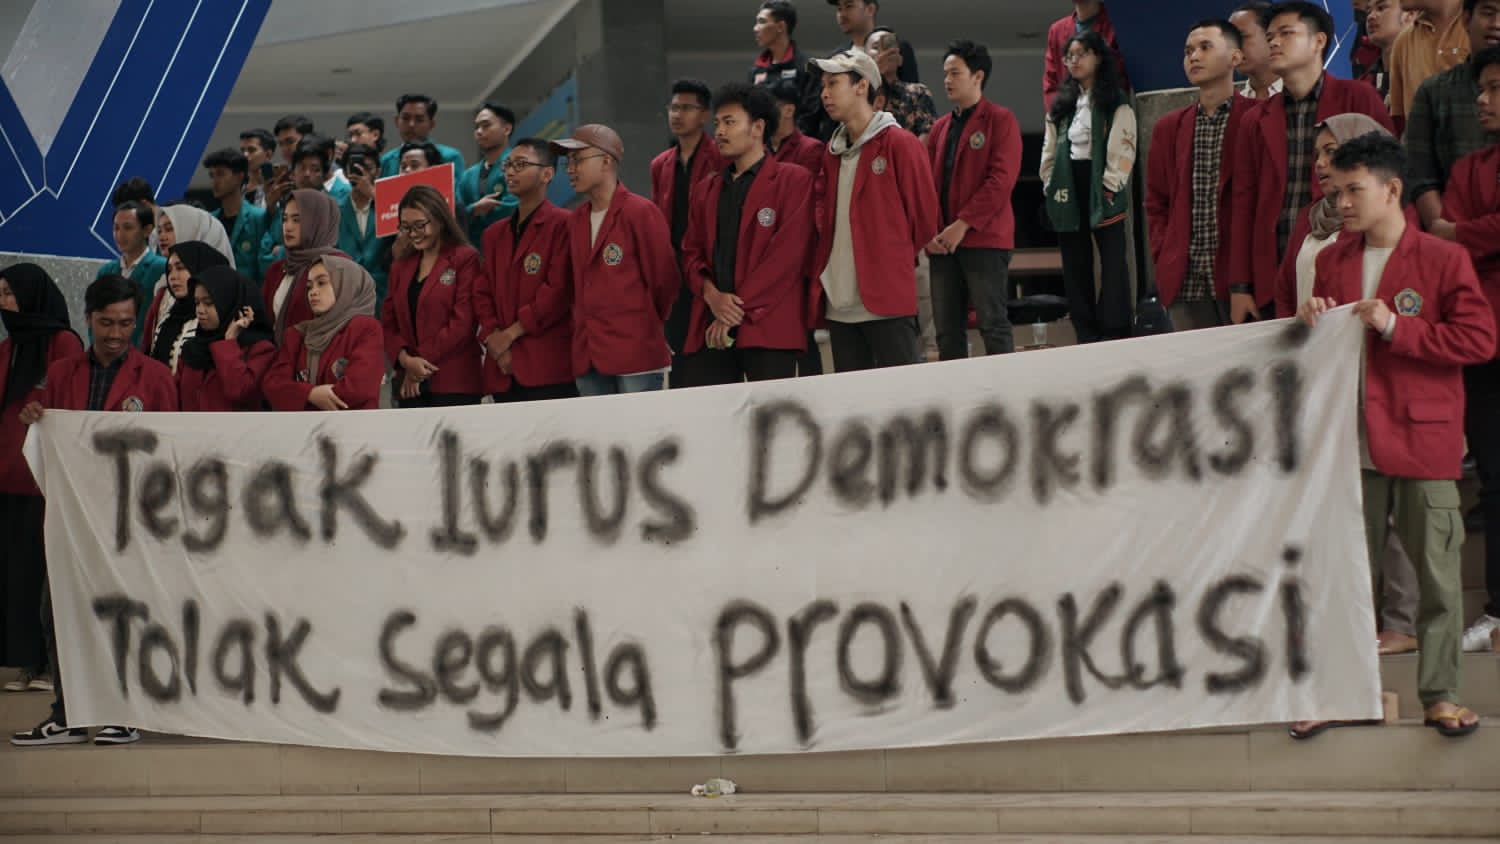 Tegak lurus Demokrasi
Tolak Segala Provokasi
45